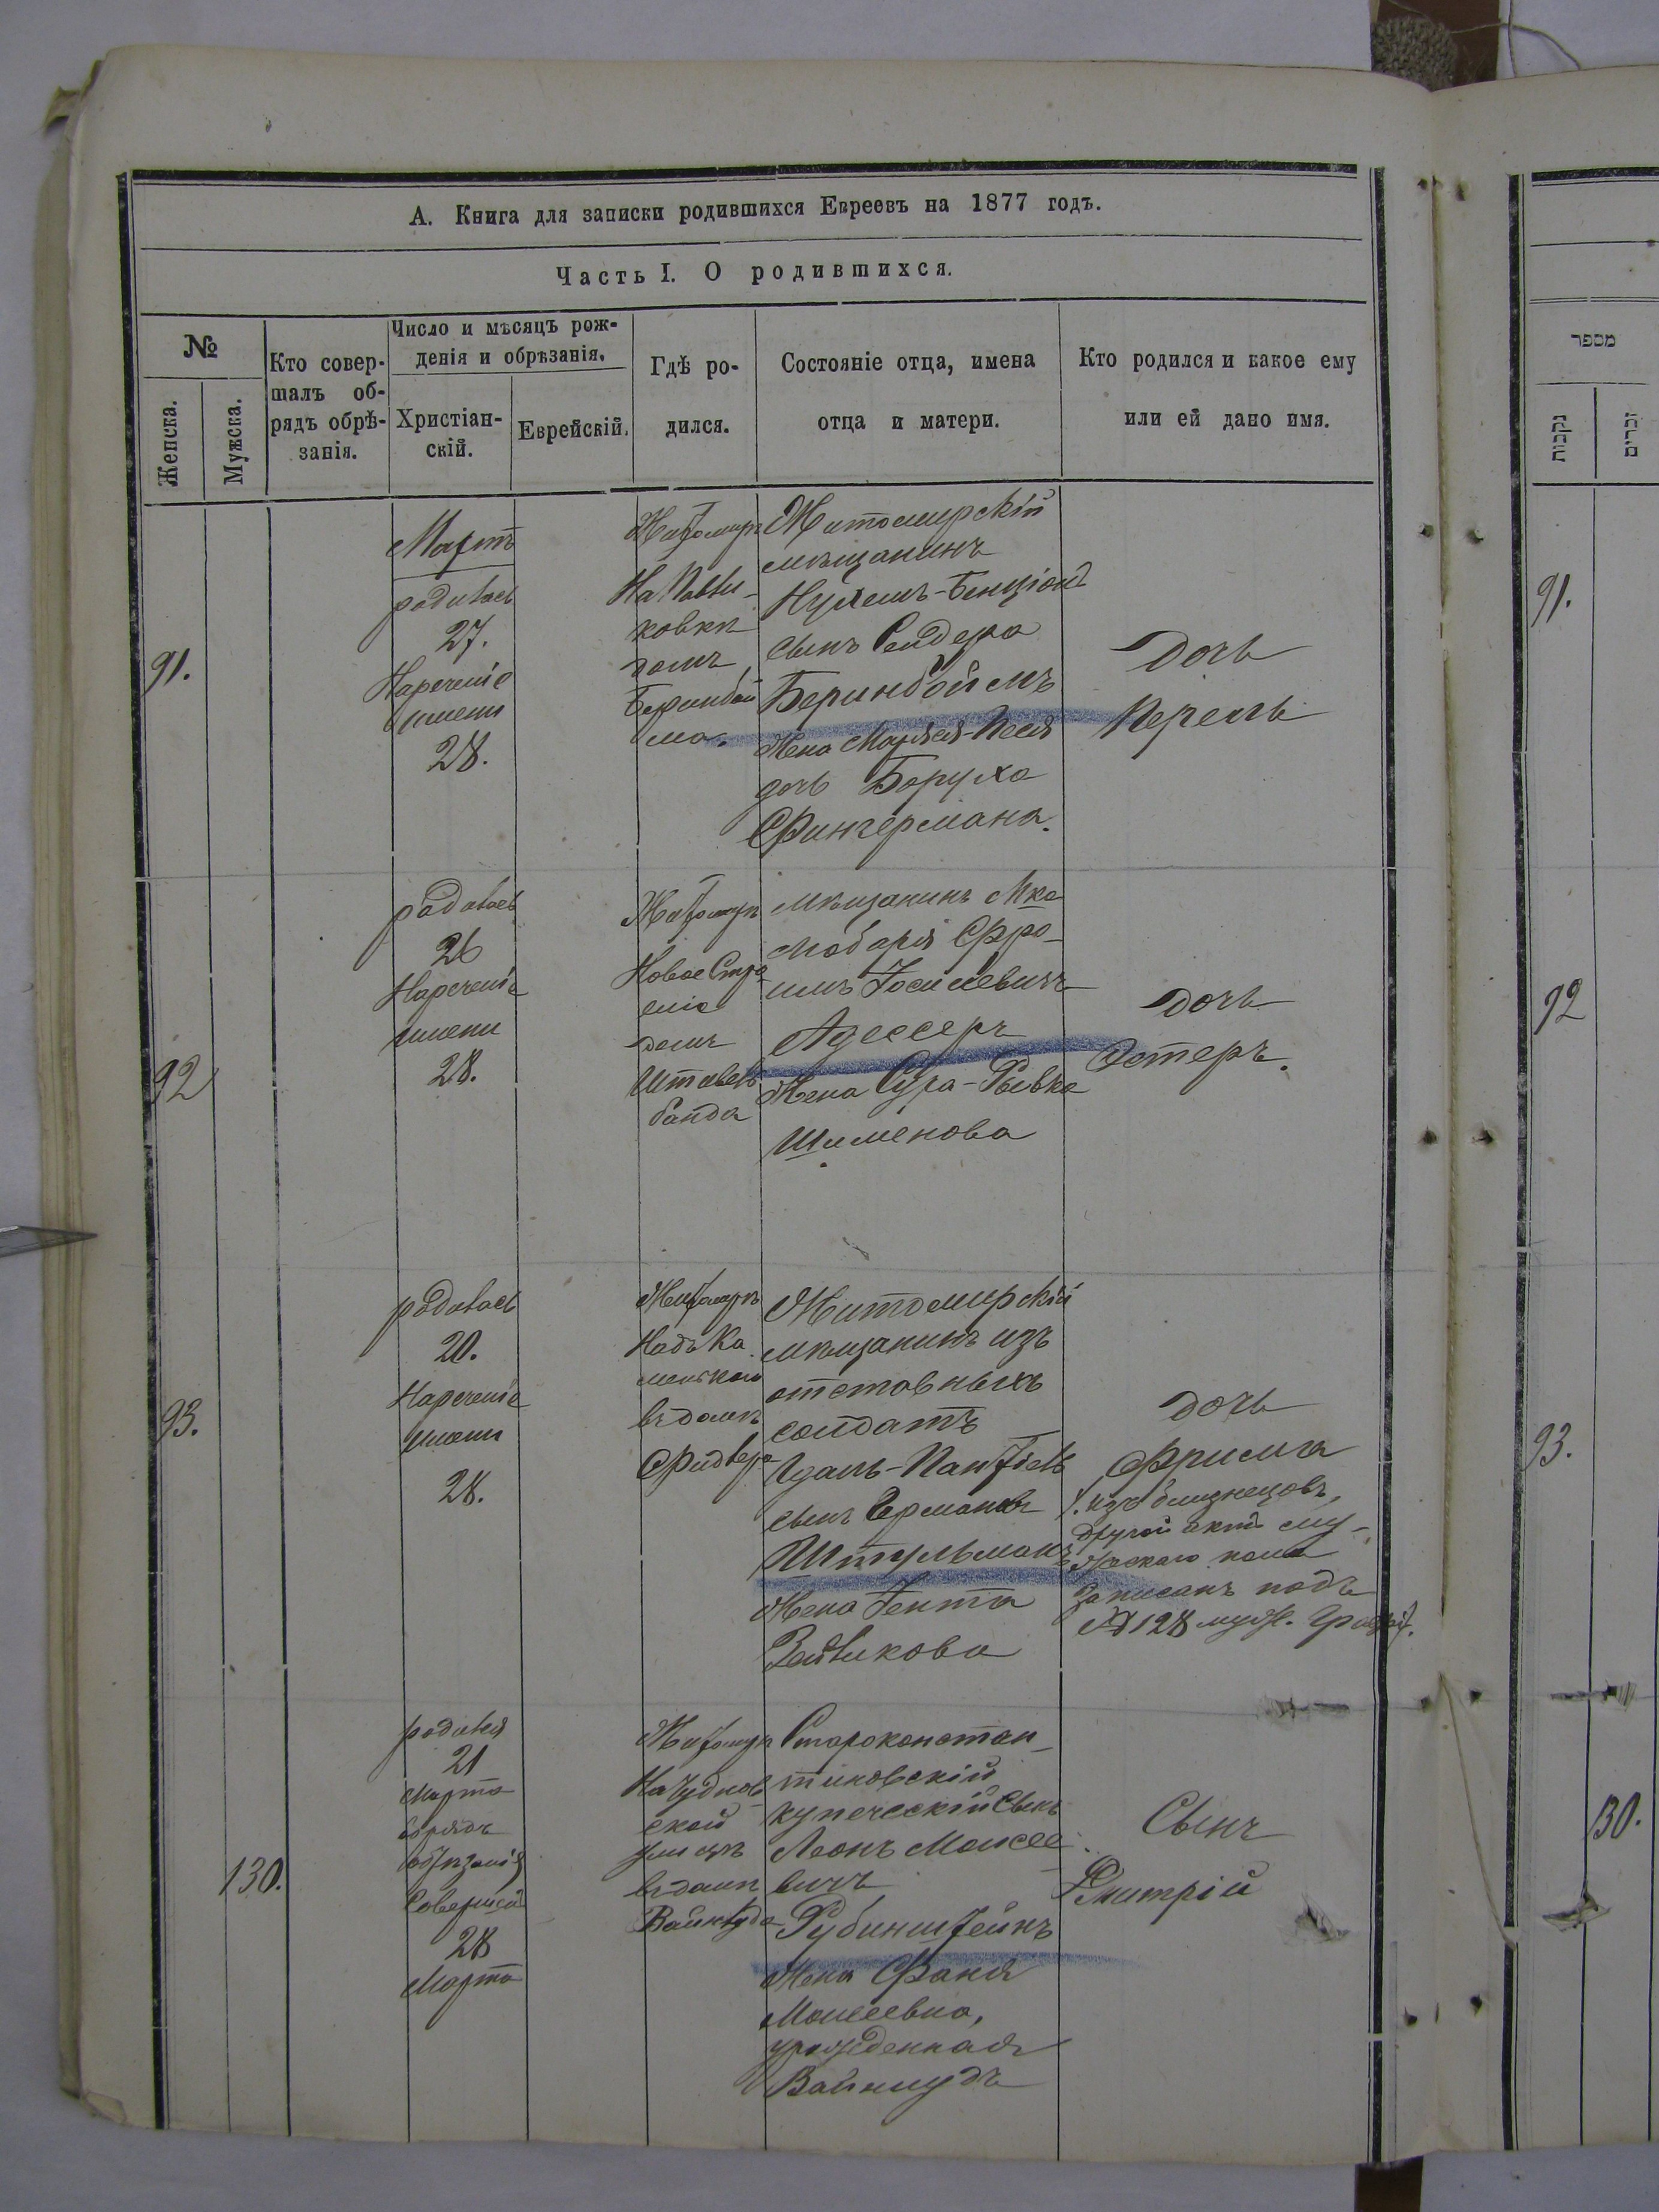 А. Книга для записки родившихся Евреевъ на 1877 годъ.
Часть I. О родившихся.
№
Женска.
Мужска.
Кто совер-
шалъ об-
рядъ обрѣ-
занія.
Число и мѣсяцъ рож-
денія и обрѣзанія.
Христіан-
скій.
Еврейскій.
Гдѣ ро-
дился.
Состояніе отца, имена
отца и матери.
Кто родился и какое ему
или ей дано имя.
91.
Мартъ
родилась
27.
Нареченіе
имени
28.
Житомиръ
На
ковкѣ
домъ
Беринбой
ма.
Житомирскій
мѣщанинъ
Нухемъ-Бенціонъ
сынъ Сендера
Беринбоймъ
Жена Песя
дочь Боруха
Фингермана.
Дочь
Перель
92
родилась
26
Нареченіе
имени
28.
Житомиръ
Новое Стро
еніе
домъ
банда
мѣщанинъ Мка
Любаря Фро-
имъ
Адессеръ
Жена Сура-Рывка
Шименова
дочь
Эстеръ.
93.
родилась
20.
Нареченіе
имени
28.
Житомиръ
Надъ Ка
менкою
въ домѣ
Житомирскій
мѣщанинъ изъ
отставныхъ
солдатъ
сынъ Германа
Штульманъ
Жена Гента
Зейликова
дочь
Фрима
изъ близнецовъ,
другой актъ му-
жескаго пола
записанъ подъ
№ 128 муж. графы.
130.
родился
21
Марта
обрядъ
обрѣзанія
совершенъ
28
Марта
Житомиръ
На Чуднов-
ской
улицѣ
въ домѣ
Староконстан-
тиновскій
купеческій сынъ
Леонъ Моисее
вичъ
Рубинштейнъ
Жена Фаня
Моисеевна,
урожденная
Вайншудъ
Сынъ
Дмитрій
מספר
נקבות
זכרים
91.
92
93.
130.